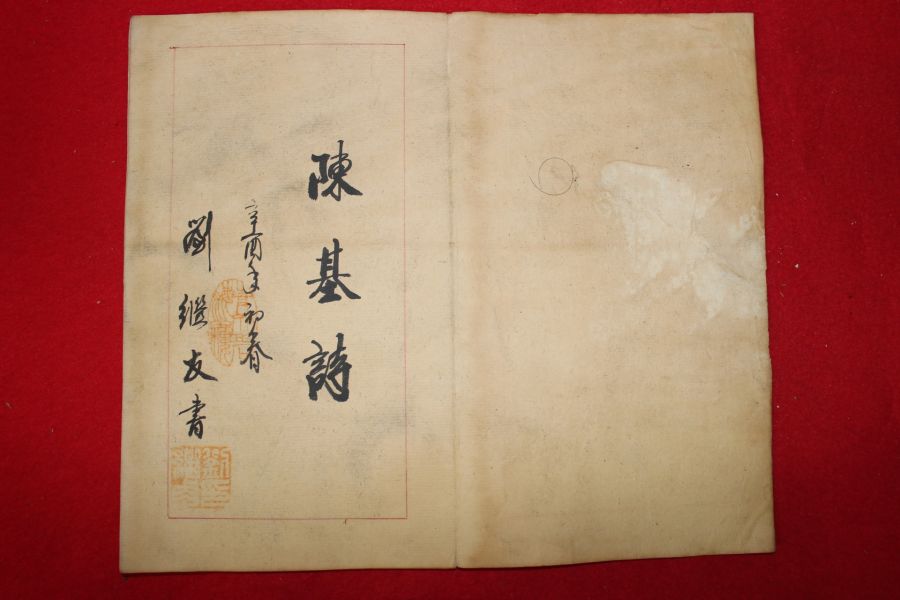 陳基詩
辛酉年初春
劉继友書